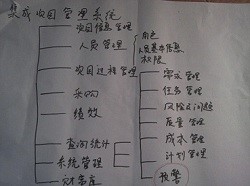 集成项目管理系统
项目信息管理
人员管理
角色
人员基本信息
权限
项目过程管理
采购
绩效
查询统计
系统管理
需求管理
任务管理
风险及问题
质量管理
成本管理
计划管理
预警